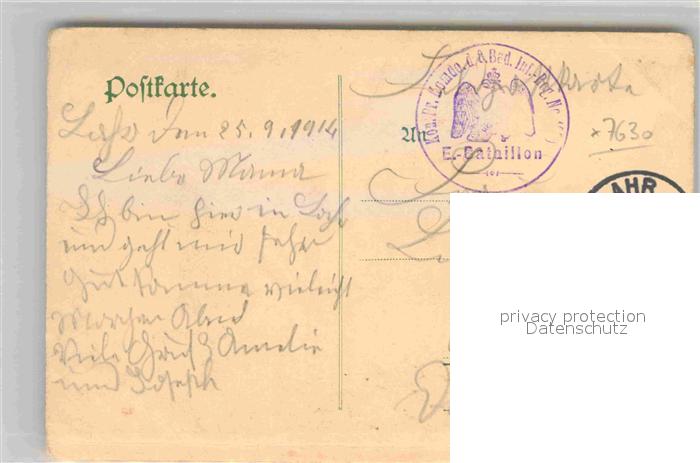 Postkarte.
Lahr den 25.9.1914
Liebe Mama
Ich bin hier in Lahr
und geht mir sehr
gut komme vieleicht
Morgen Abend
Viele Grüße Amelie
und Joseph
Feldpostkarte
An
Kön. Pr. Komdo. d. 8. Bad. Inf.-Reg. No.
E.-Bataillon
x 7630
AHR
privacy protection
Datenschutz